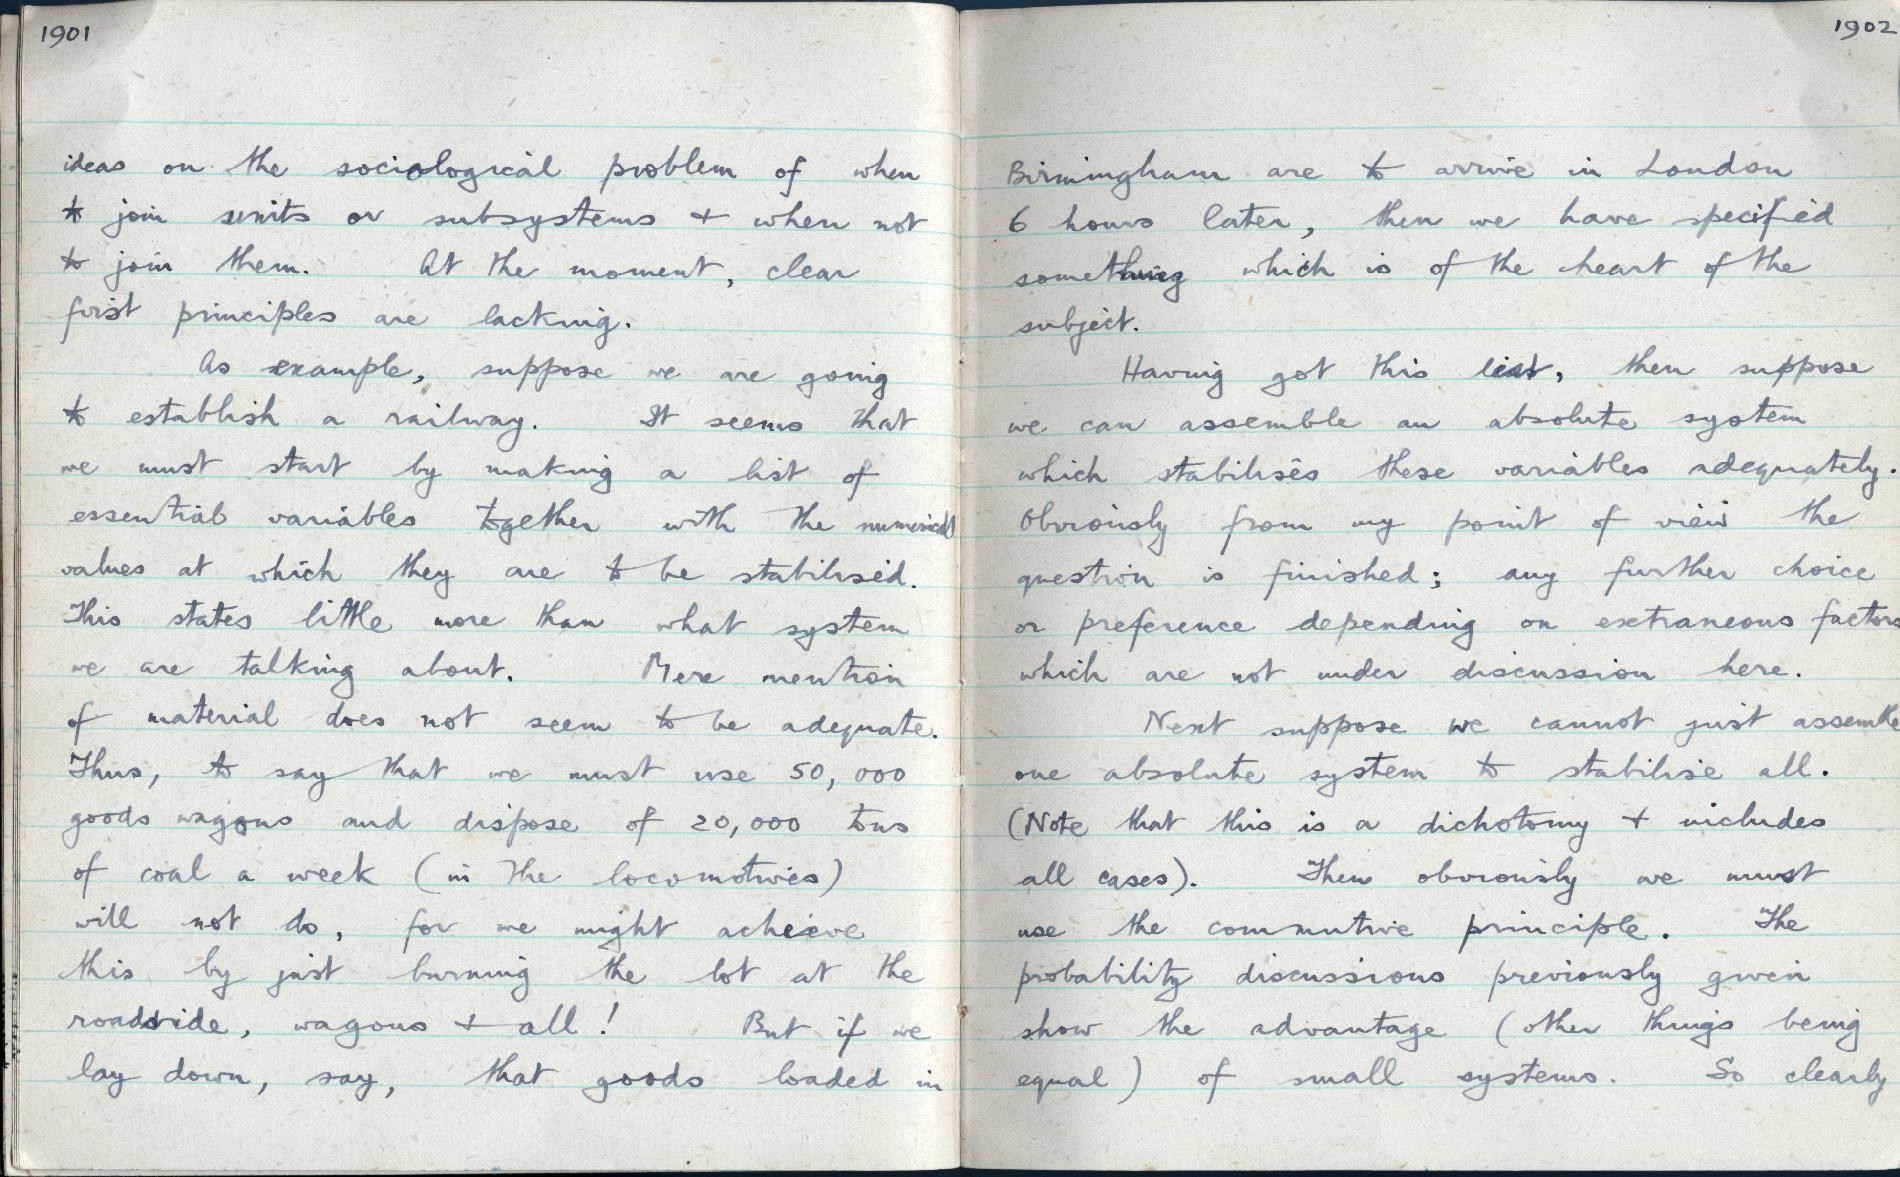 1901
ideas on the sociological problem of when
to join units or subsystems + when not
to join them. At the moment, clear
first principles are lacking.
As example, suppose we are going
to establish a railway. It seems that
we must start by making a list of
essential variables together with the numerical
values at which they are to be stabilised.
This states little more than what system
we are talking about. Mere mention
of material does not seem to be adequate.
Thus, to say that we must use 50,000
goods wagons and dispose of 20,000 tons
of coal a week (in the locomotives)
will not do, for we might acheive
this by just burning the lot at the
roadside, wagons + all! But if we
lay down, say, that goods loaded in
1902
Birmingham are to arrive in London
6 hours later, then we have specified
something which is of the heart of the
subject.
Having got this list, then suppose
we can assemble an absolute system
which stabilises these variables adequately.
Obviously from my point of view the
question is finished; any further choice
or preference depending on extraneous factors
which are not under discussion here.
Next suppose we cannot just assemble
one absolute system to stabilise all.
(Note that this is a dichotomy + includes
all cases). Then obviously we must
use the commutive principle. The
probability discussions previously given
show the advantage (other things being
equal) of small systems. So clearly